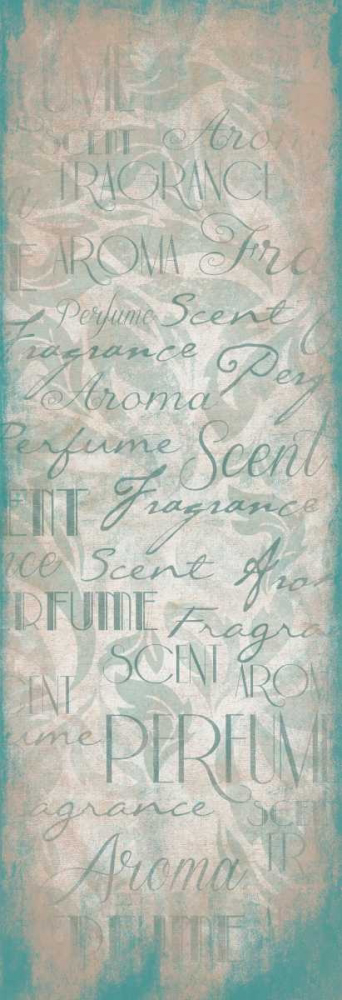 UME
SCENT Arom
FRAGRANCE
AROMA Fra
Perfume Scent
Fragrance
Perf
Aroma
Perfume Scent
ENT Fragrance
nce Scent Arom
RFUME Fragra
SCENT
ENT AROM
ume PERFUME
agrance SCE
FR
Aroma
RFUME